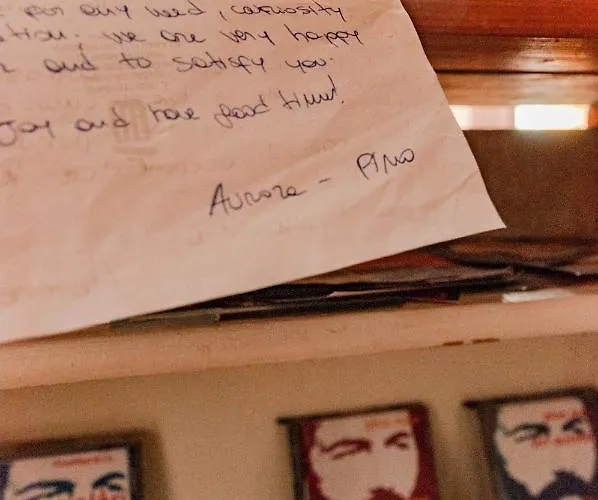 for any need, curiosity
we are very happy
and to satisfy you.
joy and have good time!
Aurora - Pino